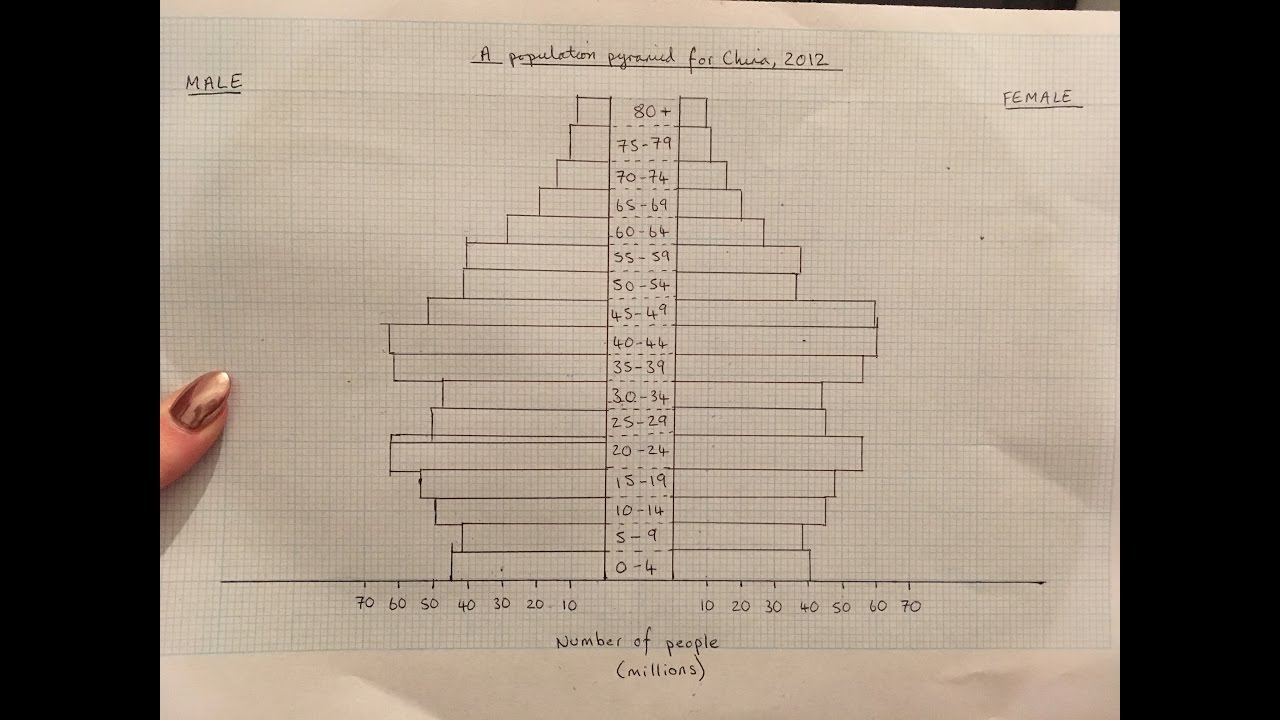 A population pyramid for China, 2012
MALE
FEMALE
80+
75-79
70-74
65-69
60-64
55-59
50-54
45-49
40-44
35-39
30-34
25-29
20-24
15-19
10-14
5-9
0-4
70 60 50 40 30 20 10 10 20 30 40 50 60 70
Number of people
(millions)